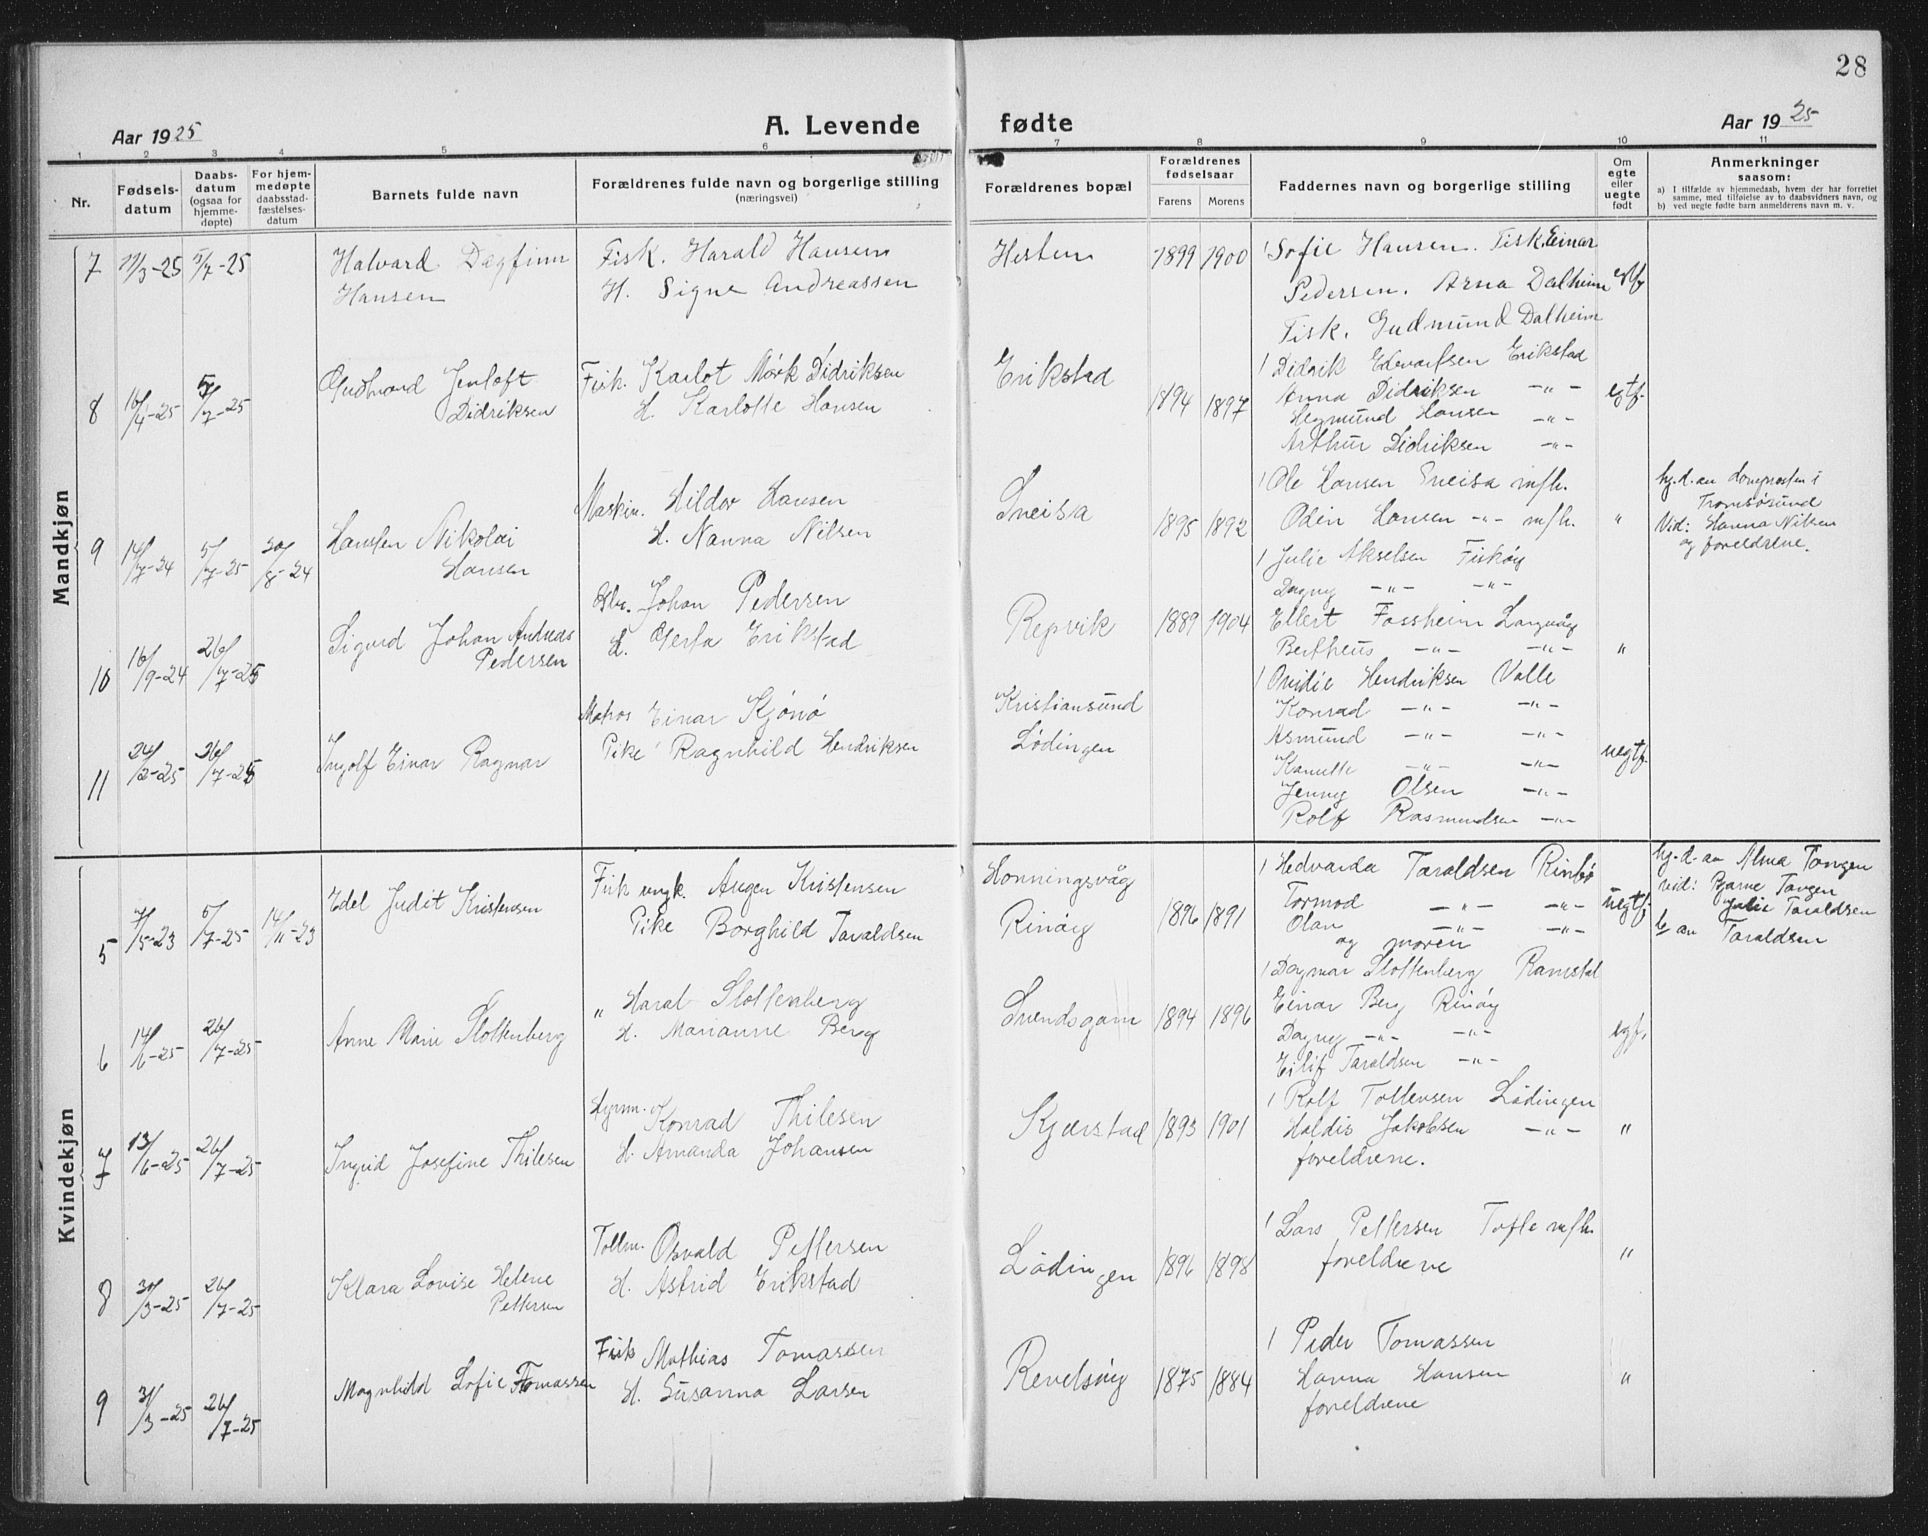 28
Aar 1925
A. Levende
fødte
Aar 1925
1 2 3 4 5 6 7 8 9 10 11
Nr.
Fødsels-
datum
Daabs-
datum
(ogsaa for
hjemme-
døpte)
For hjem-
medøpte
daabsstad-
fæstelses-
datum
Barnets fulde navn
Forældrenes fulde navn og borgerlige stilling
(næringsvei)
Forældrenes bopæl
Forældrenes
fødselsaar
Farens Morens
Faddernes navn og borgerlige stilling
Om
egte
eller
uegte
født
Anmerkninger
saasom:
a) I tilfælde av hjemmedaab, hvem der har forrettet
samme, med tilføielse av to daabsvidners navn, og
b) ved uegte fødte barn anmelderens navn m. v.
Mandkjøn
7 11/3-25 5/7-25 Halvard Dagfinn
Hansen
Fisk. Harald Hansen
H. Signe Andreassen
Hesten 1899 1900
1 Sofie Hansen. Fisk. Einar
Pedersen. Arna Dalheim
Fisk. Gudmund Dalheim
8 16/4-25 5/7-25 Gudhard Jenloft
Didriksen
Fisk. Karlot Mørk Didriksen
H. Karlotte Hansen
Erikstad 1894 1897
1 Didrik Edvartsen Erikstad
Anna Didriksen -"-
Hegmund Hansen -"-
Arthur Didriksen -"-
egtf.
9 14/7-24 5/7-25 30/8-24 Hansten Nikolai
Hansen
Maskin. Hildor Hansen
H. Nanna Nilsen
Sneisa 1895 1892
1 Ole Hansen Sneisa m/h.
Odin Hansen -"- m/h.
1 Julie Akselsen Fiskøy
Dagny -"- -"-
"
hj.d. av
Tromsøsund
Vid: Hanna Nilsen
og foreldrene.
10 16/9-24 26/7-25 Sigurd Johan Andreas
Pedersen
Johan Pedersen
H. Gerfa Erikstad
Repvik 1889 1904
Ellert Fossheim Langvåg
Bertheus -"- -"-
"
11 24/2-25 26/7-25 Ingolf Einar Ragnar
Matros Einar Kjønø
Pike Ragnhild Hendriksen
Kristiansund
Lødingen
1 Ovidie Hendriksen Valle
Konrad -"- -"-
Asmund -"- -"-
Kanutte -"- -"-
Jenny Olsen -"-
Rolf Rasmundsen -"-
uegtf.
Kvindekjøn
5 7/5-23 5/7-25 14/11-23 Edel Judit Kristensen
Fisk ungk. Augen Kristensen
Pike Borghild Taraldsen
Honningsvåg
Rinøy 1896 1891
1 Hedvarda Taraldsen Rinøy
Tormod -"- -"-
Olav -"- -"-
og moren
uegtf.
hj.d. av Alma Tangen
vid: Bjarne Tangen
Julie Taraldsen
b/ av Taraldsen
6 14/6-25 26/7-25 Anne Marie Stoltenberg
" Haral Stoltenberg
H. Marianne Berg
Svendsgam 1894 1896
1 Dagmar Stoltenberg Ramstad
Einar Berg Rinøy
Dagny -"- -"-
Eilif Taraldsen -"-
egf.
7 13/6-25 26/7-25 Ingrid Josefine Thilesen
Konrad Thilesen
H. Amanda Johansen
Kjærstad 1893 1901
1 Rolf Tollevsen Lødingen
Haldis Jakobsen -"-
foreldrene.
"
8 30/3-25 26/7-25 Klara Lovise Helene
Pettersen
Tollm. Osvald Pettersen
H. Astrid Erikstad
Lødingen 1896 1898
1 Lars Pettersen Tofte m/h.
foreldrene
"
9 31/3-25 26/7-25 Magnhild Sofie Tomassen
Fisk Mathias Tomassen
H. Susanna Larsen
Revelsøy 1875 1884
1 Peder Tomassen
Hanna Hansen
foreldrene
"